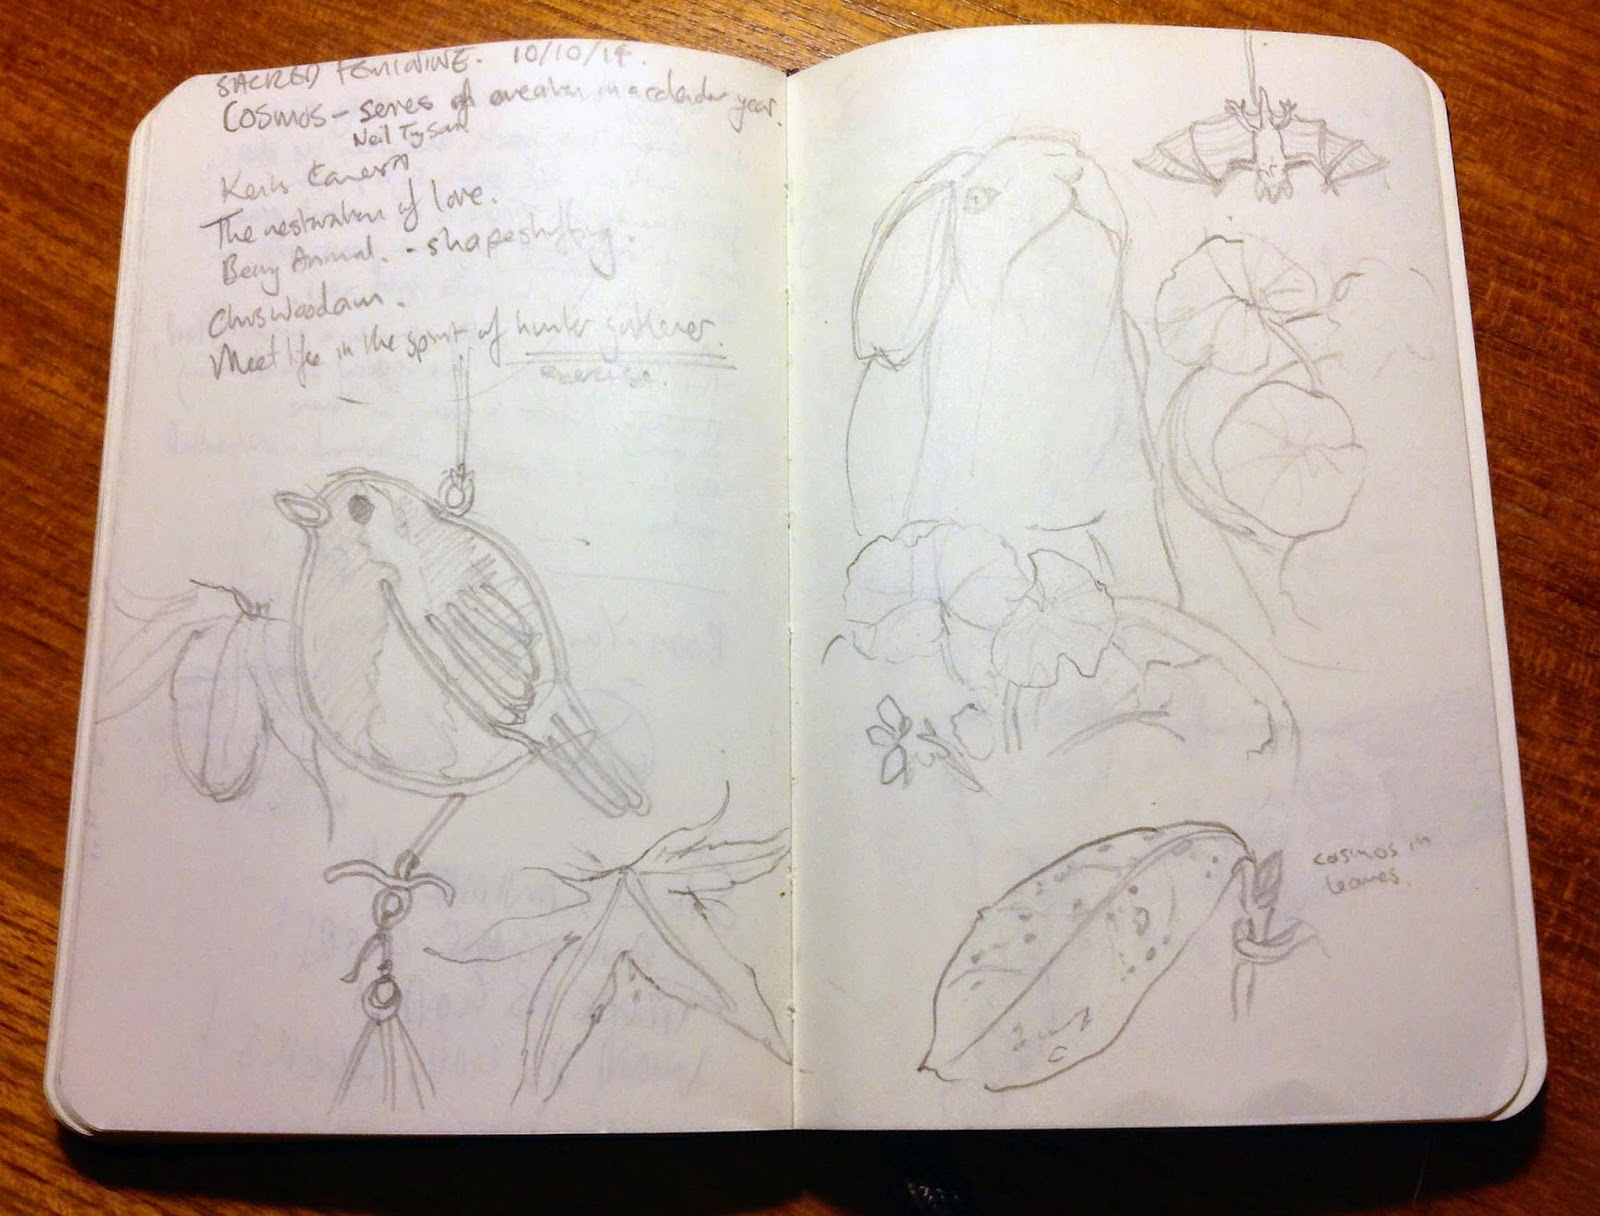 SACRED FEMININE. 10/10/14.
COSMOS – series of creation in a calendar year.
Neil Tyson
Keris
The restoration of love.
Being Animal. - shapeshifting.
Chris Woodam.
Meet life in the spirit of hunter gatherer.
exercise.
cosmos in
leaves.